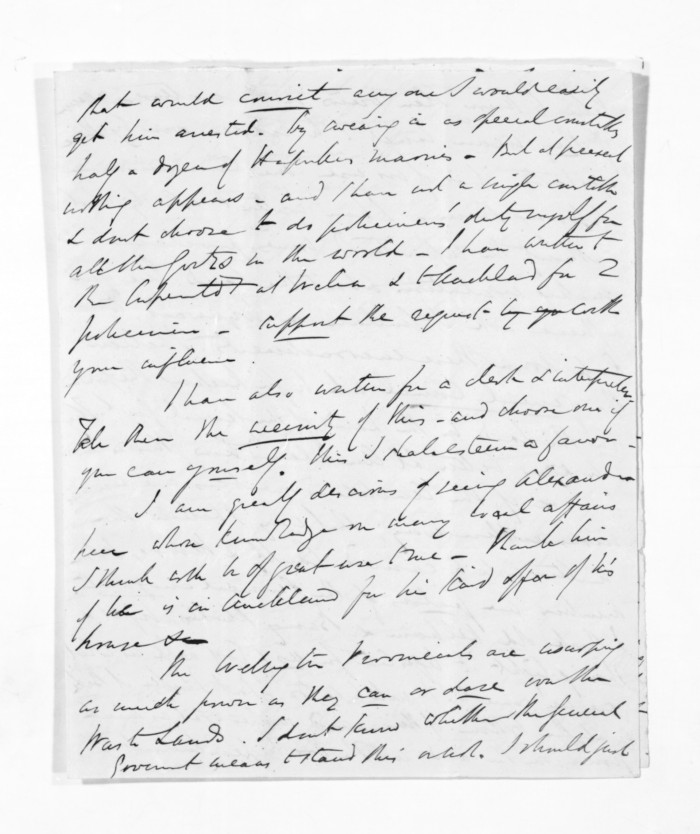 that would convict anyone I would easily
get him arrested. by swearing in as special constables
half a dozen of Hapuku's maories - But at present
nothing appears - and I have not a single constable
& dont choose to do policemens' duty myself for
all the in the world - I have written to
the at & to Auckland for 2
policemen - support the request by with
your influence.
I have also written for a clerk & interpreter
Tell them the necessity of this - and choose one if
you can yourself. this I shall esteem a favor -
I am greatly desirous of seeing Alexander
here whose knowledge on many local affairs
I think will be of great use to me - Thank him
if he is in Auckland for his kind offer of his
house &c
The Wellington are usurping
as much power as they can or dare over the
Waste Lands. I dont know whether the General
Government means to stand this or not. I should just